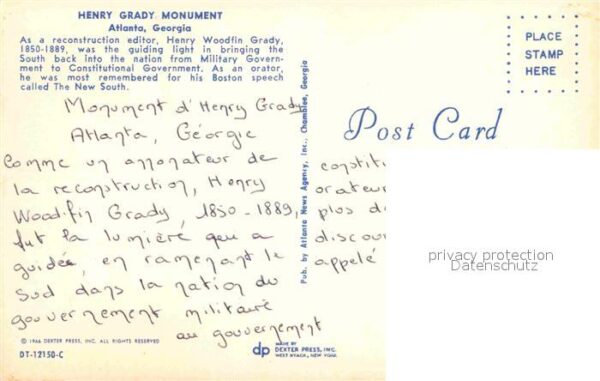 HENRY GRADY MONUMENT
Atlanta, Georgia
As a reconstruction editor, Henry Woodfin Grady,
1850-1889, was the guiding light in bringing the
South back into the nation from Military Govern-
ment to Constitutional Government. As an orator,
he was most remembered for his Boston speech
called The New South.
PLACE
STAMP
HERE
Monument d'Henry Grady
Atlanta, Géorgie
Comme un annonateur de
la reconstruction, Henry
Woodifin Grady, 1850-1889,
fut la lumière qui a
guidée, en ramenant le
Sud dans la nation du
gouvernement militaire
au gouvernement
Pub. by Atlanta News Agency, Inc., Chamblee, Georgia
Post Card
constit
orateur
plus d
discou
appelé
privacy protection
Datenschutz
© 1966 DEXTER PRESS, INC. ALL RIGHTS RESERVED
DT-12150-C
dp
MADE BY
DEXTER PRESS, INC.
WEST NYACK, NEW YORK